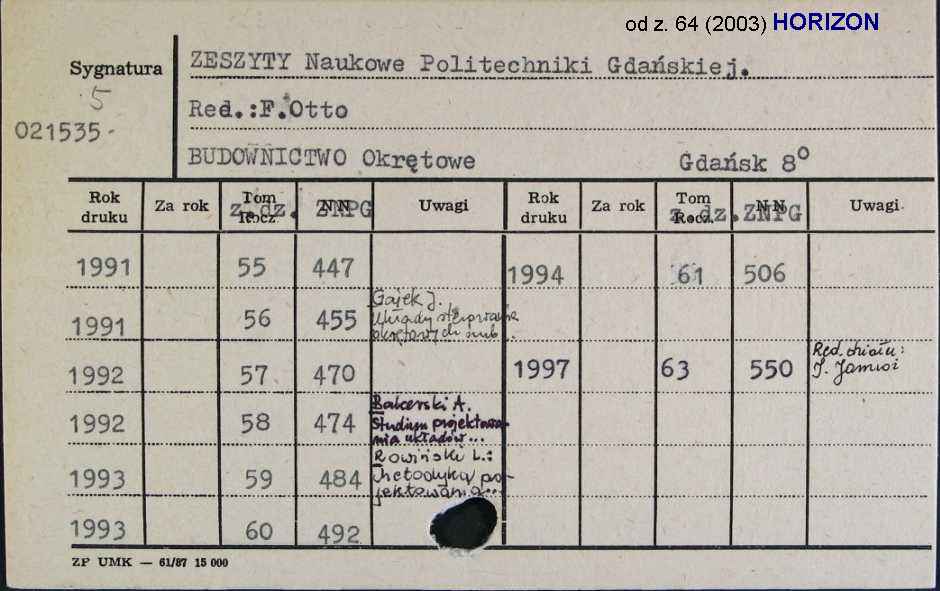 od z. 64 (2003) HORIZON
Sygnatura
5
021535.
ZESZYTY Naukowe Politechniki Gdańskiej.
Red.:F.Otto
BUDOWNICTWO Okrętowe Gdańsk 8°
Rok druku Za rok Tom Rocz. z.dz. NN ZNPG Uwagi Rok druku Za rok Tom Rocz. z.dz. NN ZNPG Uwagi
1991 55 447 1994 61 506
1991 56 455 Gajek J.
Układy sterowania
okrętowych śrub
1992 57 470 1997 63 550 Red. działu:
J.
1992 58 474 Balcerski A.
Studium projektowa-
nia układów...
1993 59 484 Rowiński L.:
Metodyka po-
jektowania...
1993 60 492
ZP UMK — 61/87 15 000